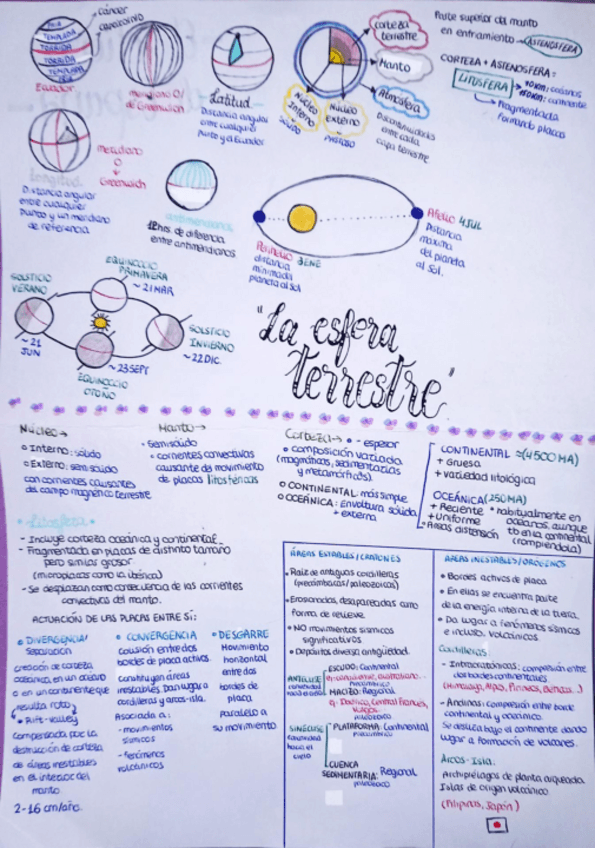 Cáncer
Capricornio
FRÍA
TEMPLADA
TÓRRIDA
TÓRRIDA
TEMPLADA
FRÍA
Ecuador
meridiano 0/
de Greenwich
Latitud
Distancia angular
entre cualquier
punto y el Ecuador
corteza
terrestre
Manto
Atmósfera
Núcleo
Interno
Sólido
Núcleo
Externo
Discontinuidades
entre cada
capa terrestre
Parte superior del manto
en enfriamiento → ASTENOSFERA
CORTEZA + ASTENOSFERA =
LITOSFERA
océanos
continente
Fragmentada
formando placas
Meridiano
0
Greenwich
Longitud
Distancia angular
entre cualquier
punto y un meridiano
de referencia.
antimeridiano
12hrs de diferencia
entre antimeridianos
Afelio 4 JUL
Distancia
máxima
del planeta
al Sol.
Perihelio 3 ENE
distancia
mínima del
planeta al Sol
SOLSTICIO
VERANO
~ 21
JUN
EQUINOCCIO
PRIMAVERA
~ 21 MAR
SOLSTICIO
INVIERNO
~ 22 DIC.
~ 23 SEPT
EQUINOCCIO
OTOÑO
"La esfera
terrestre"
Núcleo →
Interno: sólido
Externo: semisólido
con corrientes causantes
del campo magnético terrestre
Manto →
Semisólido
corrientes convectivas
causante de movimiento
de placas litosféricas
Corteza → - espesor
composición variada
(magmáticas, sedimentarias
y metamórficas).
CONTINENTAL: más simple
OCEÁNICA: Envoltura sólida
+ externa
CONTINENTAL ≈ (4500 MA)
+ gruesa
+ variedad litológica
OCEÁNICA (250 MA)
+ Reciente
+ Uniforme
Áreas distensión
habitualmente en
océanos, aunque
tb en la continental
(rompiéndola)
Litosfera
- Incluye corteza oceánica y continental.
- Fragmentada en placas de distinto tamaño
pero similar grosor
(microplacas como la ibérica)
- Se desplazan como consecuencia de las corrientes
convectivas del manto.
ACTUACIÓN DE LAS PLACAS ENTRE SÍ:
DIVERGENCIA/
Separación
creación de corteza
oceánica en un océano
o en un continente que
resulta roto
Rift-valley
compensada por la
destrucción de corteza
de áreas inestables
en el interior del
manto
2-16 cm/año.
CONVERGENCIA
Colisión entre dos
bordes de placa activos.
Constituyen áreas
inestables. Dan lugar a
cordilleras y arcos-isla.
Asociada a:
- movimientos
sísmicos
- fenómenos
volcánicos
DESGARRE
Movimiento
horizontal
entre dos
bordes de
placa
paralelo a
su movimiento
ÁREAS ESTABLES/CRATONES
Raíz de antiguas cordilleras
(precámbricas/paleozoicas)
Erosionadas, desaparecidas como
forma de relieve.
NO movimientos sísmicos
significativos
Depósitos diversa antigüedad.
ANTECLISE
ESCUDO: Continental
MACIZO: Regional
Central Francés,
paleozoico
SINECLISE
PLATAFORMA: Continental
Precámbrico
CUENCA
SEDIMENTARIA: Regional
paleozoico
ÁREAS INESTABLES/ORÓGENOS
Bordes activos de placa.
En ellas se encuentra parte
de la energía interna de la tierra.
Da lugar a fenómenos sísmicos
e incluso volcánicos
Cordilleras
- Intracratónicas: compresión entre
dos bordes continentales
(Himalaya, Alpes, Pirineos, Bética...)
- Andinas: compresión entre borde
continental y oceánico.
Se desliza bajo el continente dando
lugar a formación de volcanes.
Arcos-Isla:
Archipiélagos de planta arqueada
Islas de origen volcánico
(Filipinas, Japón)